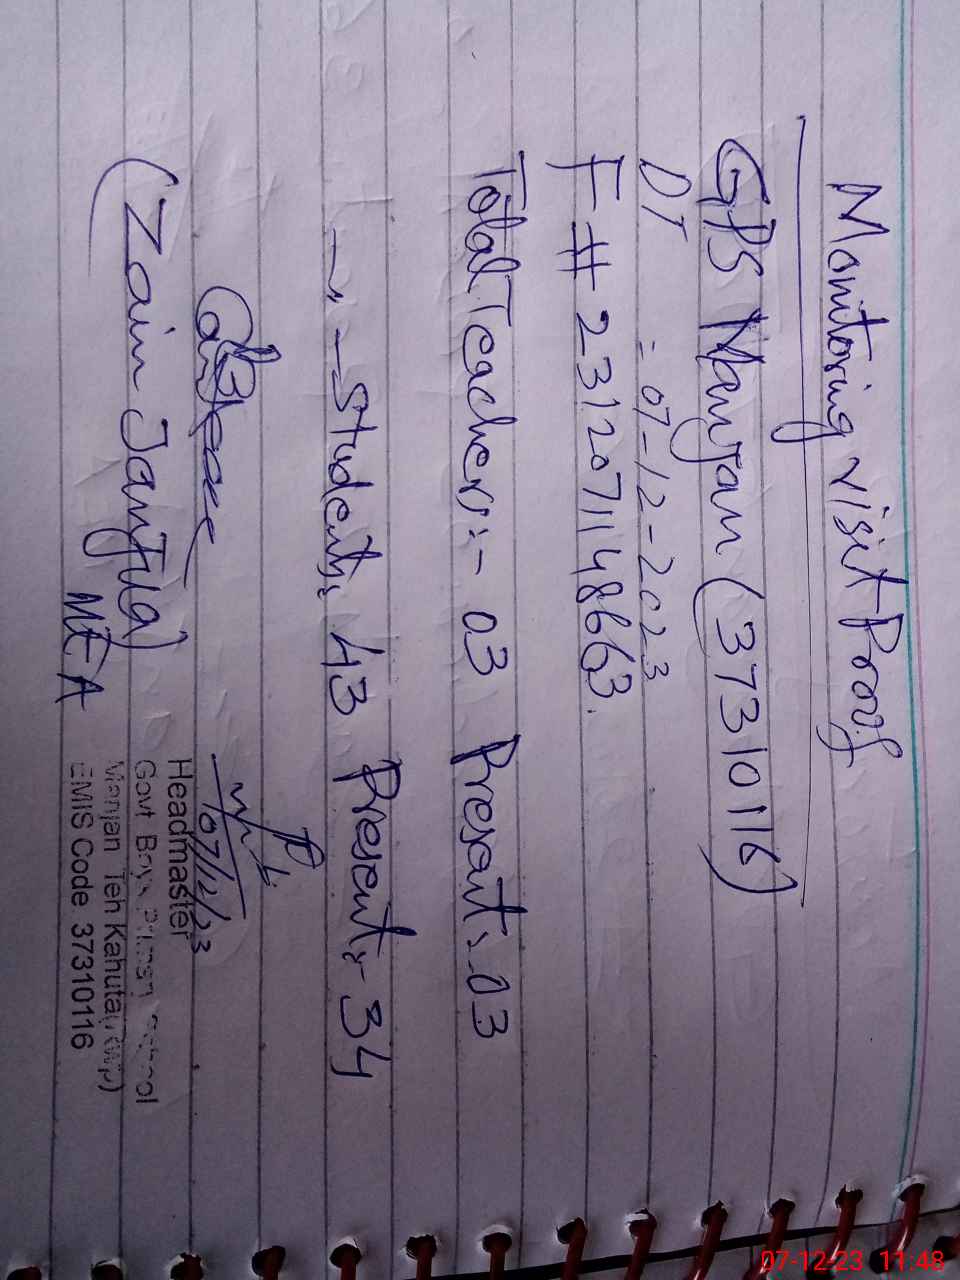 Monitoring visit Proof
GPS Manjan (37310116)
DT = 07-12-2023
F# 231207114 8663.
Total Teachers:- 03 Present:- 03
-"- Students:- 43 Present:- 34
07/12/23
(Zain Janjua)
MEA
Headmaster
Govt Boys Primary School
Manjan Teh Kahuta (RWP)
EMIS Code 37310116
07-12-23 11:48